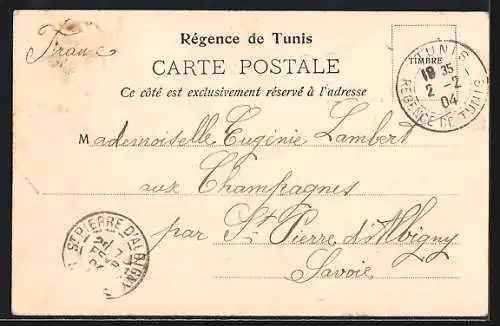 France
Régence de Tunis
CARTE POSTALE
Ce côté est exclusivement réservé à l'adresse
TIMBRE
TUNIS
19 35
2 -2
04
REGENCE DE TUNIS
Mademoiselle Eugénie Lambert
aux Champagnes
par St Pierre d'Albigny
Savoie
ST PIERRE D'ALBIGNY